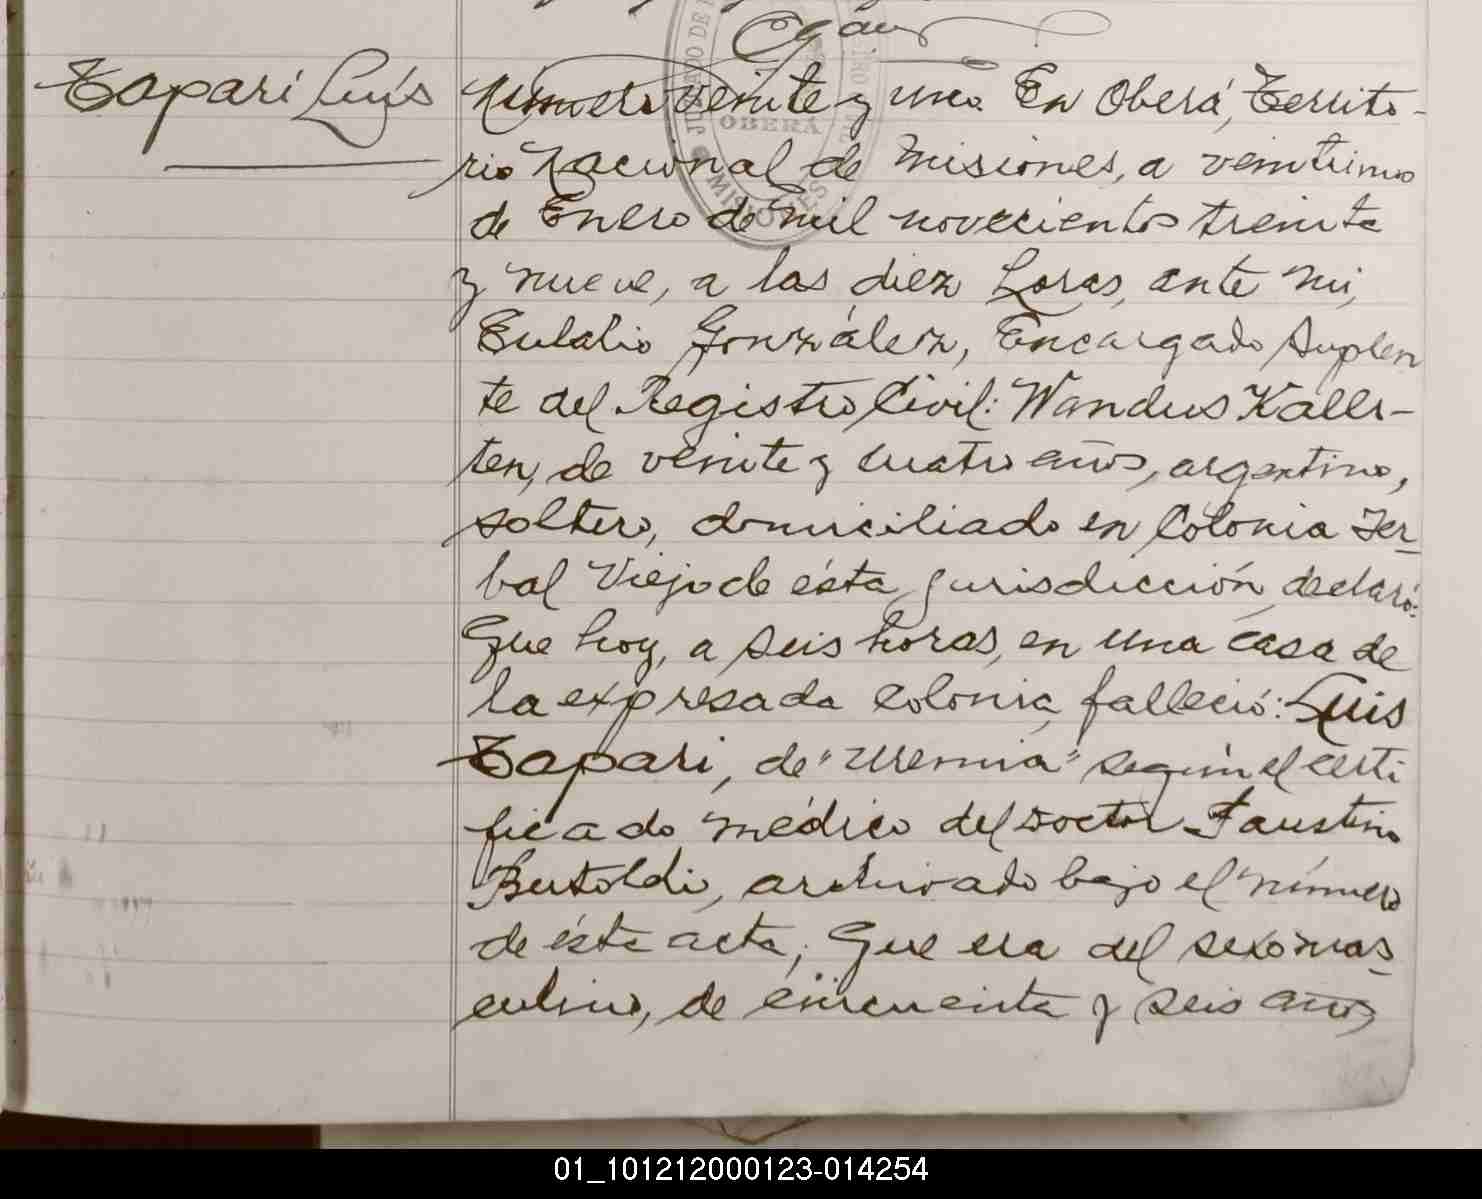 JUZGADO DE
OBERÁ
MISIONES
Tapari Luís
Número veinte y uno. En Oberá, Territo-
rio Nacional de Misiones, a veintiuno
de Enero de mil novecientos treinta
y nueve, a las diez horas, ante mi,
Eulalio González, Encargado Suplen
te del Registro Civil: Wandus Kalls-
ten, de veinte y cuatro años, argentino,
soltero, domiciliado en Colonia Yer-
bal Viejo de ésta jurisdicción, declaró:
Que hoy, a seis horas, en una casa de
la expresada colonia falleció: Luis
Tapari, de "Uremia" según el certi
ficado médico del Doctor Faustino
Bertoldi, archivado bajo el número
de ésta acta; Que era del sexo mas-
culino, de cincuenta y seis años,
01_101212000123-014254